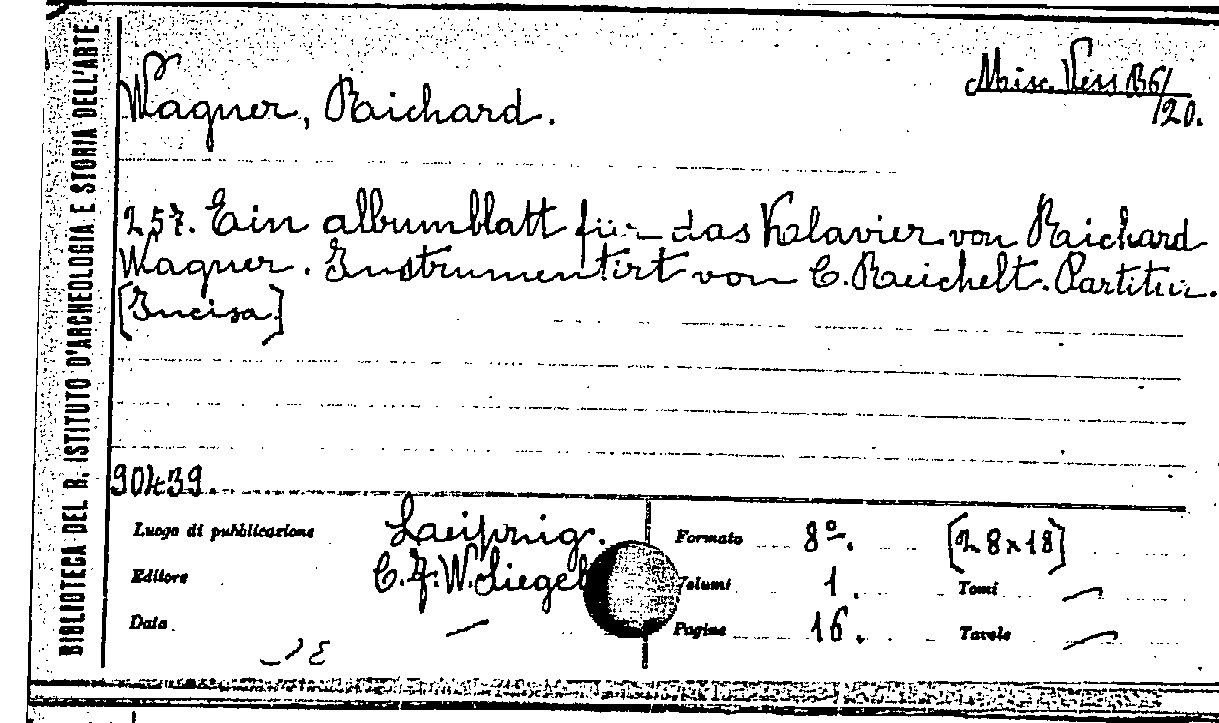 BIBLIOTECA DEL R. ISTITUTO D'ARCHEOLOGIA E STORIA DELL'ARTE
Wagner, Richard.
Misc. Vess B6/20.
257. Ein albumblatt für das Klavier von Richard
Wagner. Instrumentirt von C. Reichelt. Partitur.
[Incisa]
90439.
Luogo di pubblicazione Leipzig.
Editore C. F. W. Siegel
Data —
Formato 8º. [28x18]
Volumi 1. Tomi —
Pagine 16. Tavole —